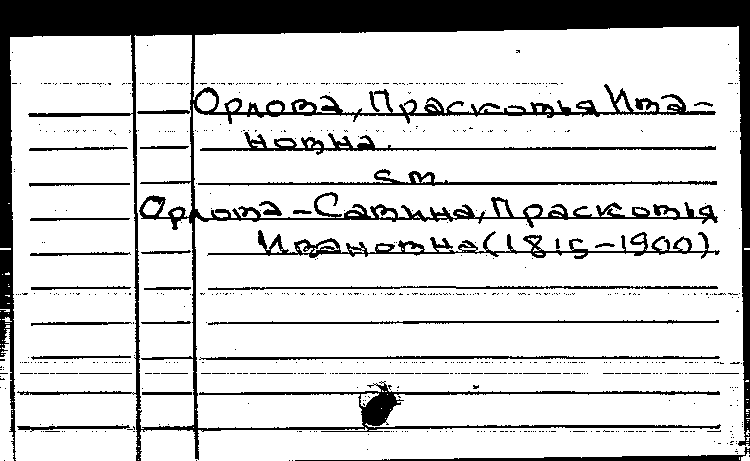 Орлова, Прасковья Ива-
новна.
см.
Орлова-Савина, Прасковья
Ивановна (1815-1900)